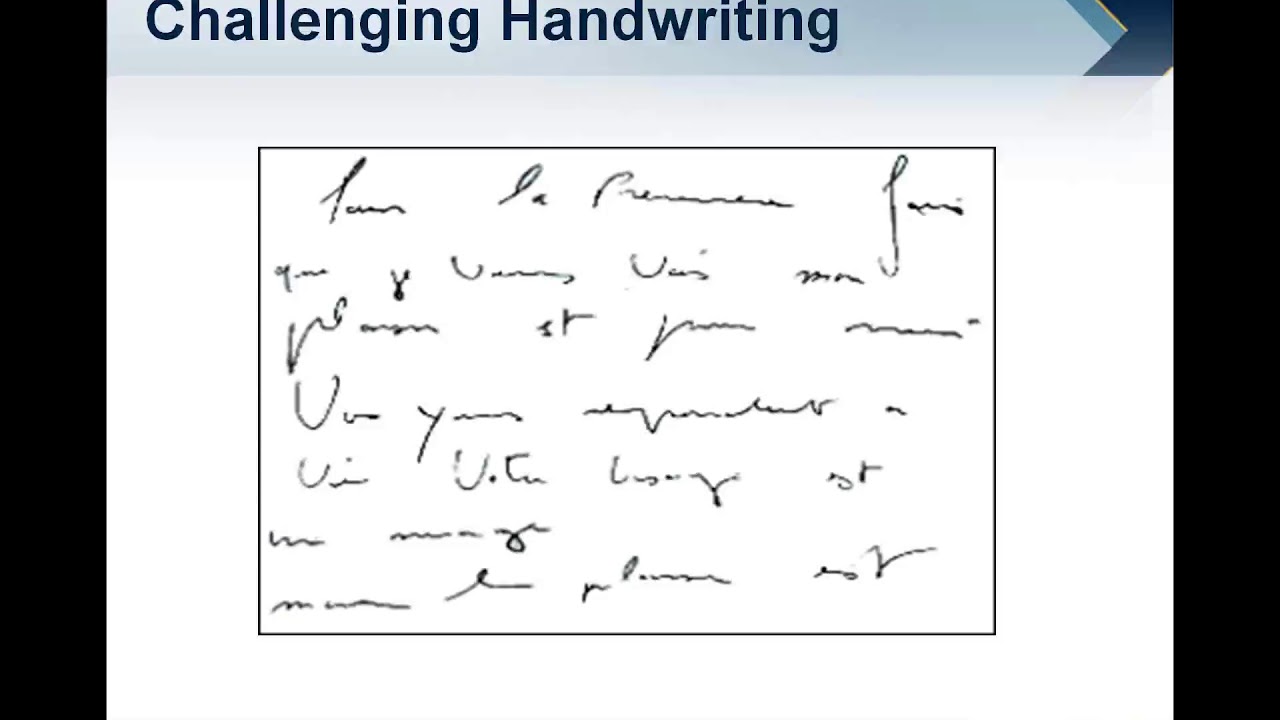 Challenging Handwriting
Pour la Premiere fois
que je vous vois mon
plaisir est pour moi
Vos yeux repondent a
Votre visage est
un nuage
mon le plaisir est